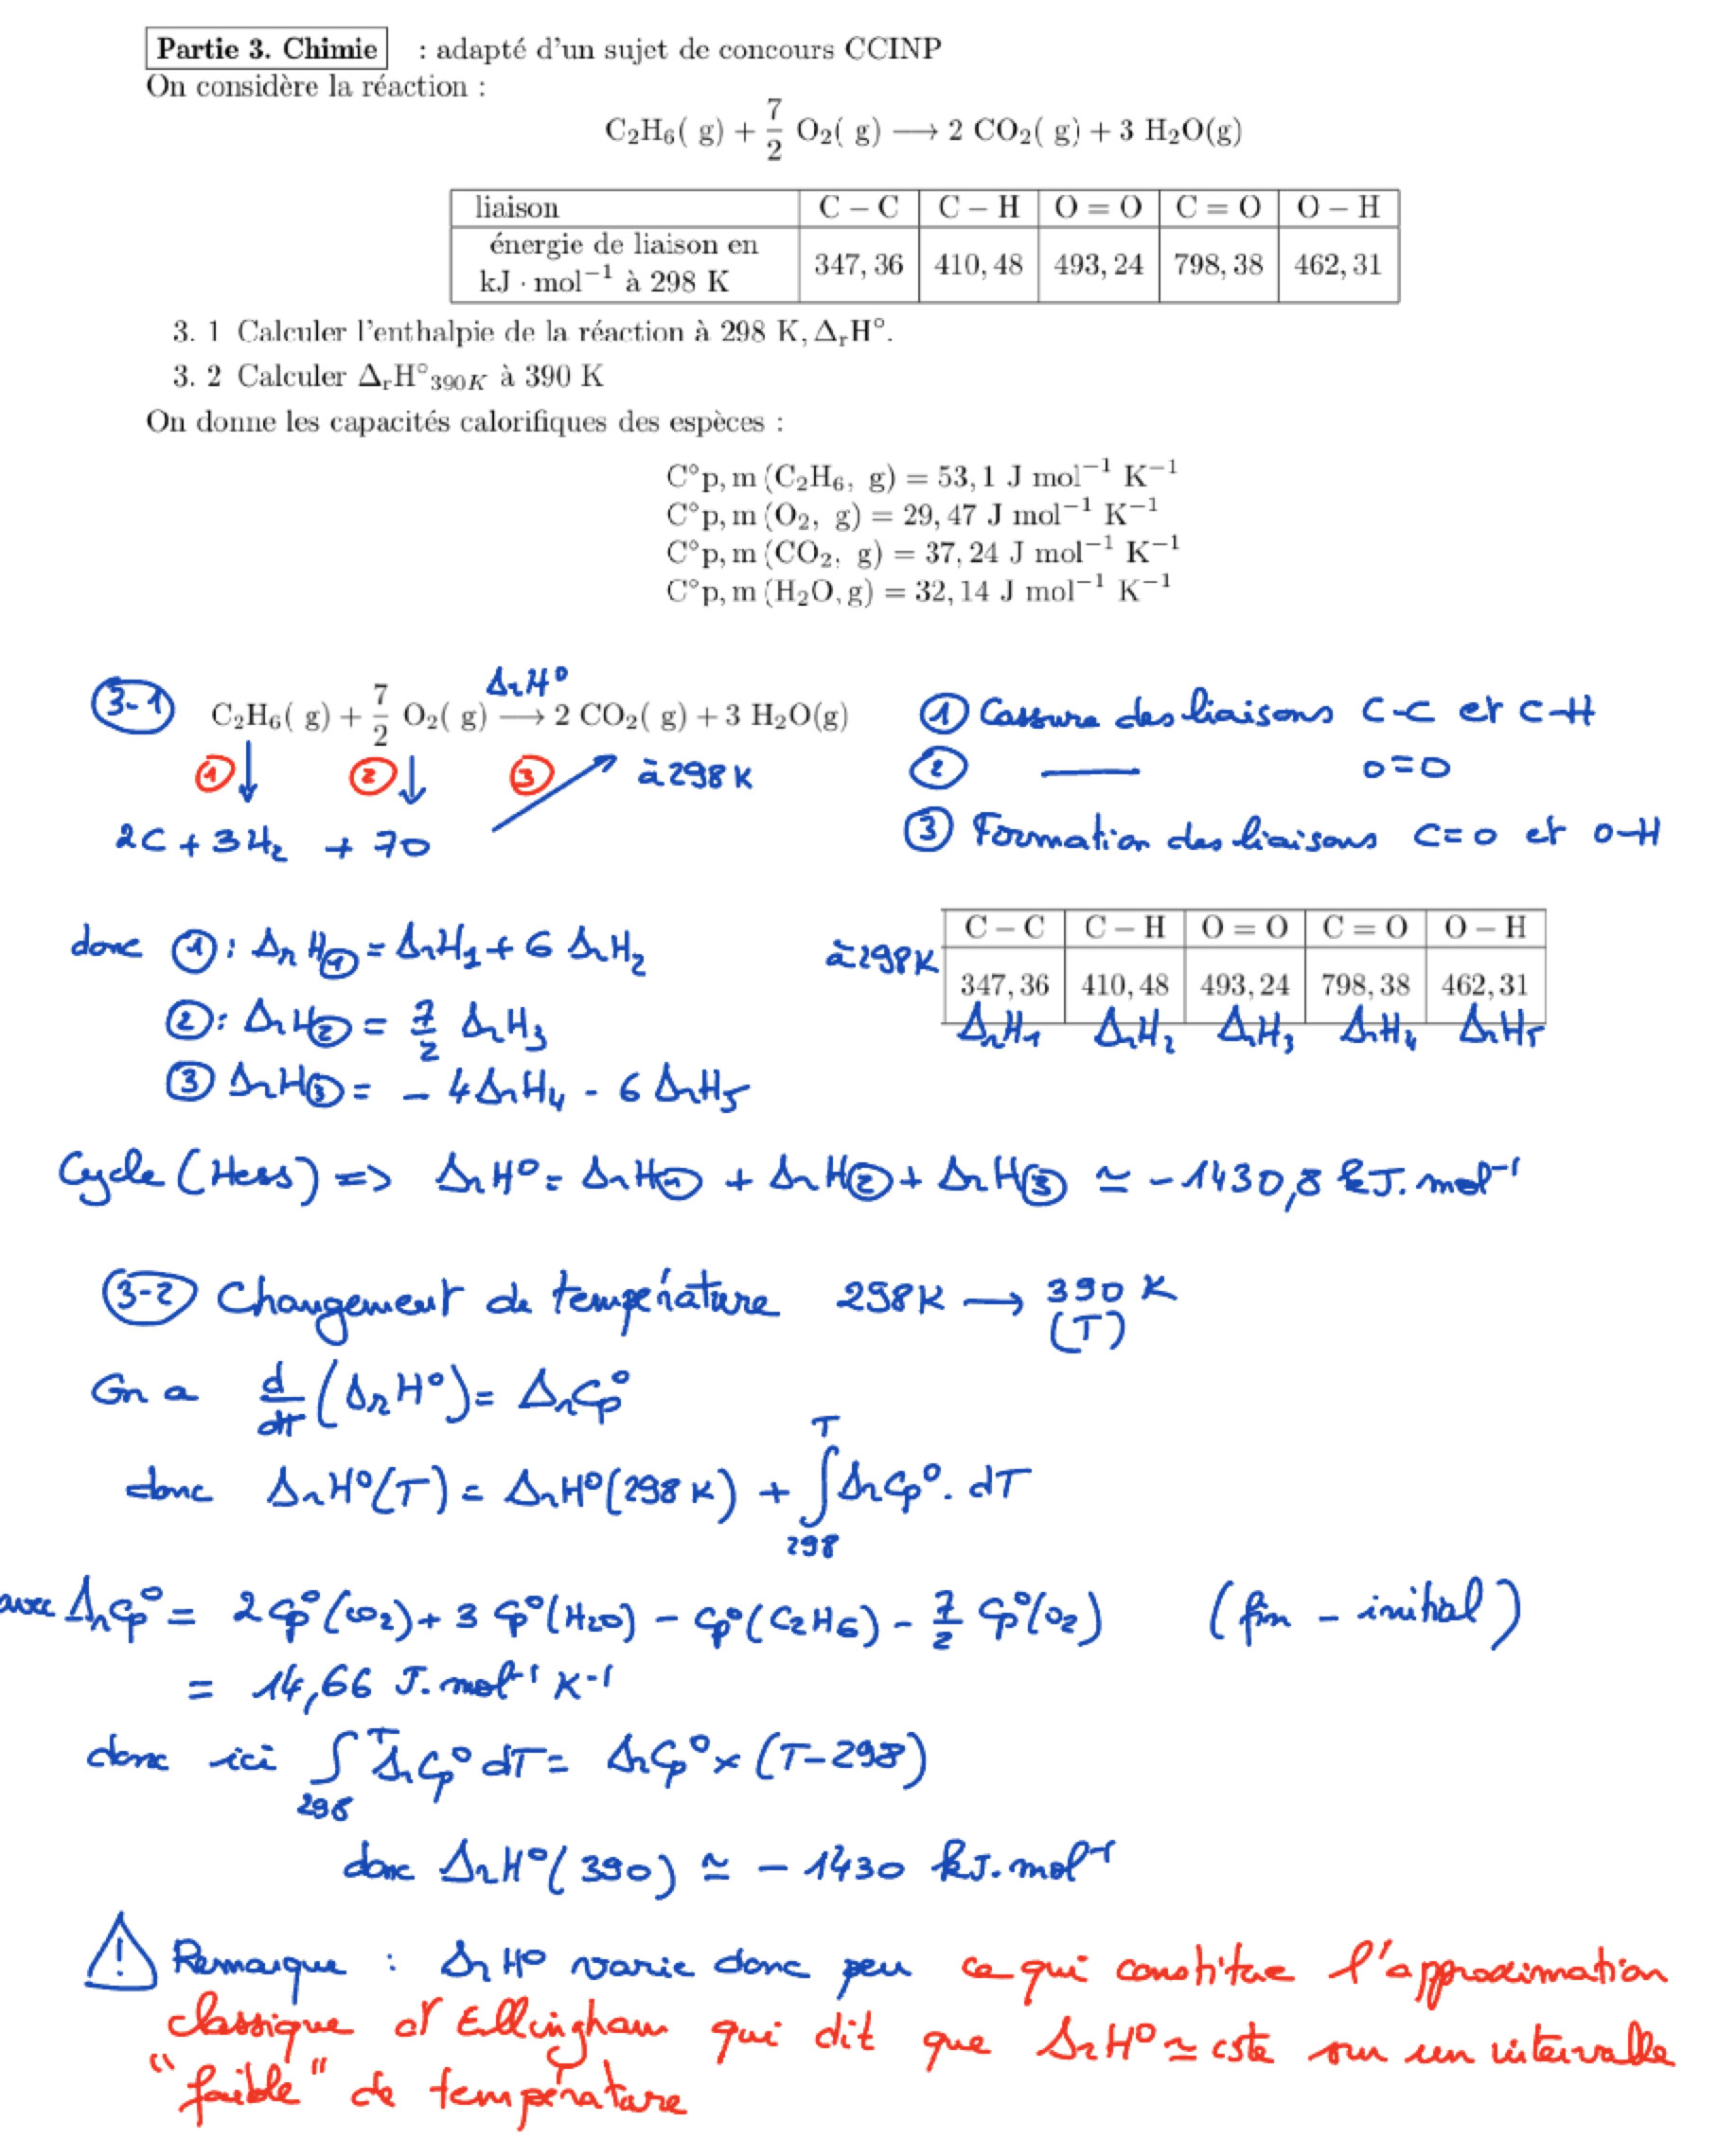 Partie 3. Chimie : adapté d'un sujet de concours CCINP
On considère la réaction :
C₂H₆( g) + 7/2 O₂( g) ⟶ 2 CO₂( g) + 3 H₂O(g)
liaison C − C C − H O = O C = O O − H
énergie de liaison en kJ · mol⁻¹ à 298 K 347, 36 410, 48 493, 24 798, 38 462, 31
3. 1 Calculer l'enthalpie de la réaction à 298 K, ΔᵣH°.
3. 2 Calculer ΔᵣH°₃₉₀K à 390 K
On donne les capacités calorifiques des espèces :
C°p, m (C₂H₆, g) = 53, 1 J mol⁻¹ K⁻¹
C°p, m (O₂, g) = 29, 47 J mol⁻¹ K⁻¹
C°p, m (CO₂, g) = 37, 24 J mol⁻¹ K⁻¹
C°p, m (H₂O, g) = 32, 14 J mol⁻¹ K⁻¹
3-1 C₂H₆( g) + 7/2 O₂( g) ⟶ 2 CO₂( g) + 3 H₂O(g)
ΔrH°
① ② ③ à 298 K
2C + 3H₂ + 7O
① Cassure des liaisons C-C et C-H
② —— O=O
③ Formation des liaisons C=O et O-H
donc ①: ΔrH① = ΔrH₁ + 6 ΔrH₂
②: ΔrH② = 7/2 ΔrH₃
③ ΔrH③ = - 4ΔrH₄ - 6 ΔrH₅
à 298K
C − C C − H O = O C = O O − H
347, 36 410, 48 493, 24 798, 38 462, 31
ΔrH₁ ΔrH₂ ΔrH₃ ΔrH₄ ΔrH₅
Cycle (Hess) => ΔrH° = ΔrH① + ΔrH② + ΔrH③ ≃ -1430,8 kJ.mol⁻¹
3-2 Changement de température 298K → 390 K
(T)
On a d/dT (ΔrH°) = ΔrCp°
donc ΔrH°(T) = ΔrH°(298 K) + ∫₂₉₈ᵀ ΔrCp°. dT
avec ΔrCp° = 2 Cp°(CO₂) + 3 Cp°(H₂O) - Cp°(C₂H₆) - 7/2 Cp°(O₂) (fin - initial)
= 14,66 J.mol⁻¹ K⁻¹
donc ici ∫₂₉₈ᵀ ΔrCp° dT = ΔrCp° × (T-298)
donc ΔrH°(390) ≃ - 1430 kJ.mol⁻¹
! Remarque : ΔrH° varie donc peu ce qui constitue l'approximation
classique d'Ellingham qui dit que ΔrH° ≃ cste sur un intervalle
"faible" de température